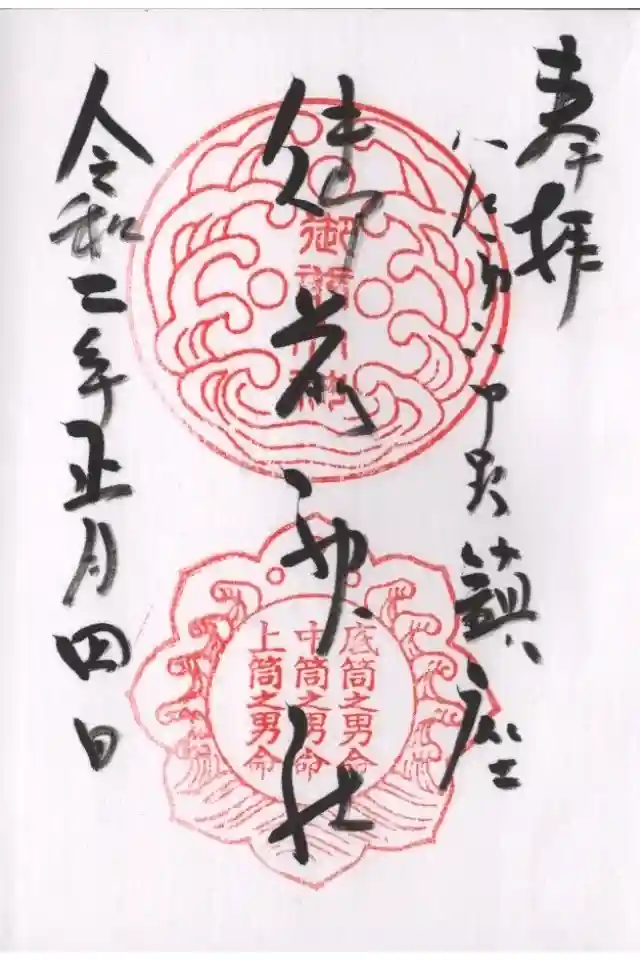 奉拝
鎮座
御前神社
御前神社
底筒之男命
中筒之男命
上筒之男命
令和二年正月四日